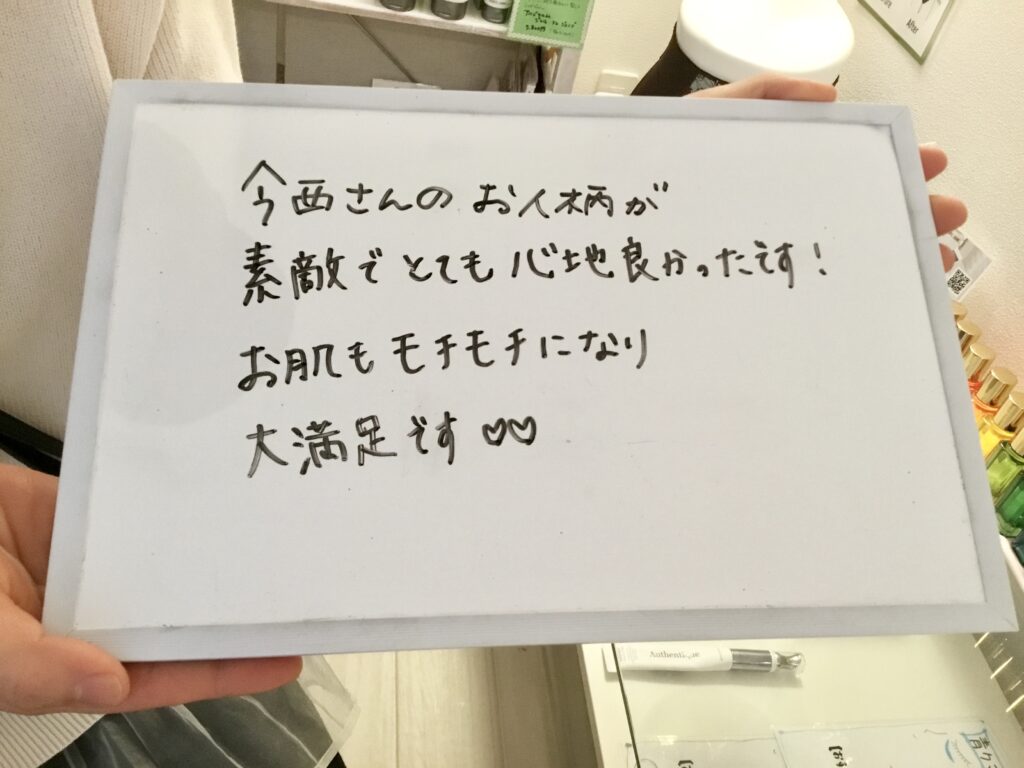 今西さんのお人柄が
素敵でとても心地良かったです!
お肌もモチモチになり
大満足です♡♡
Authentique
After